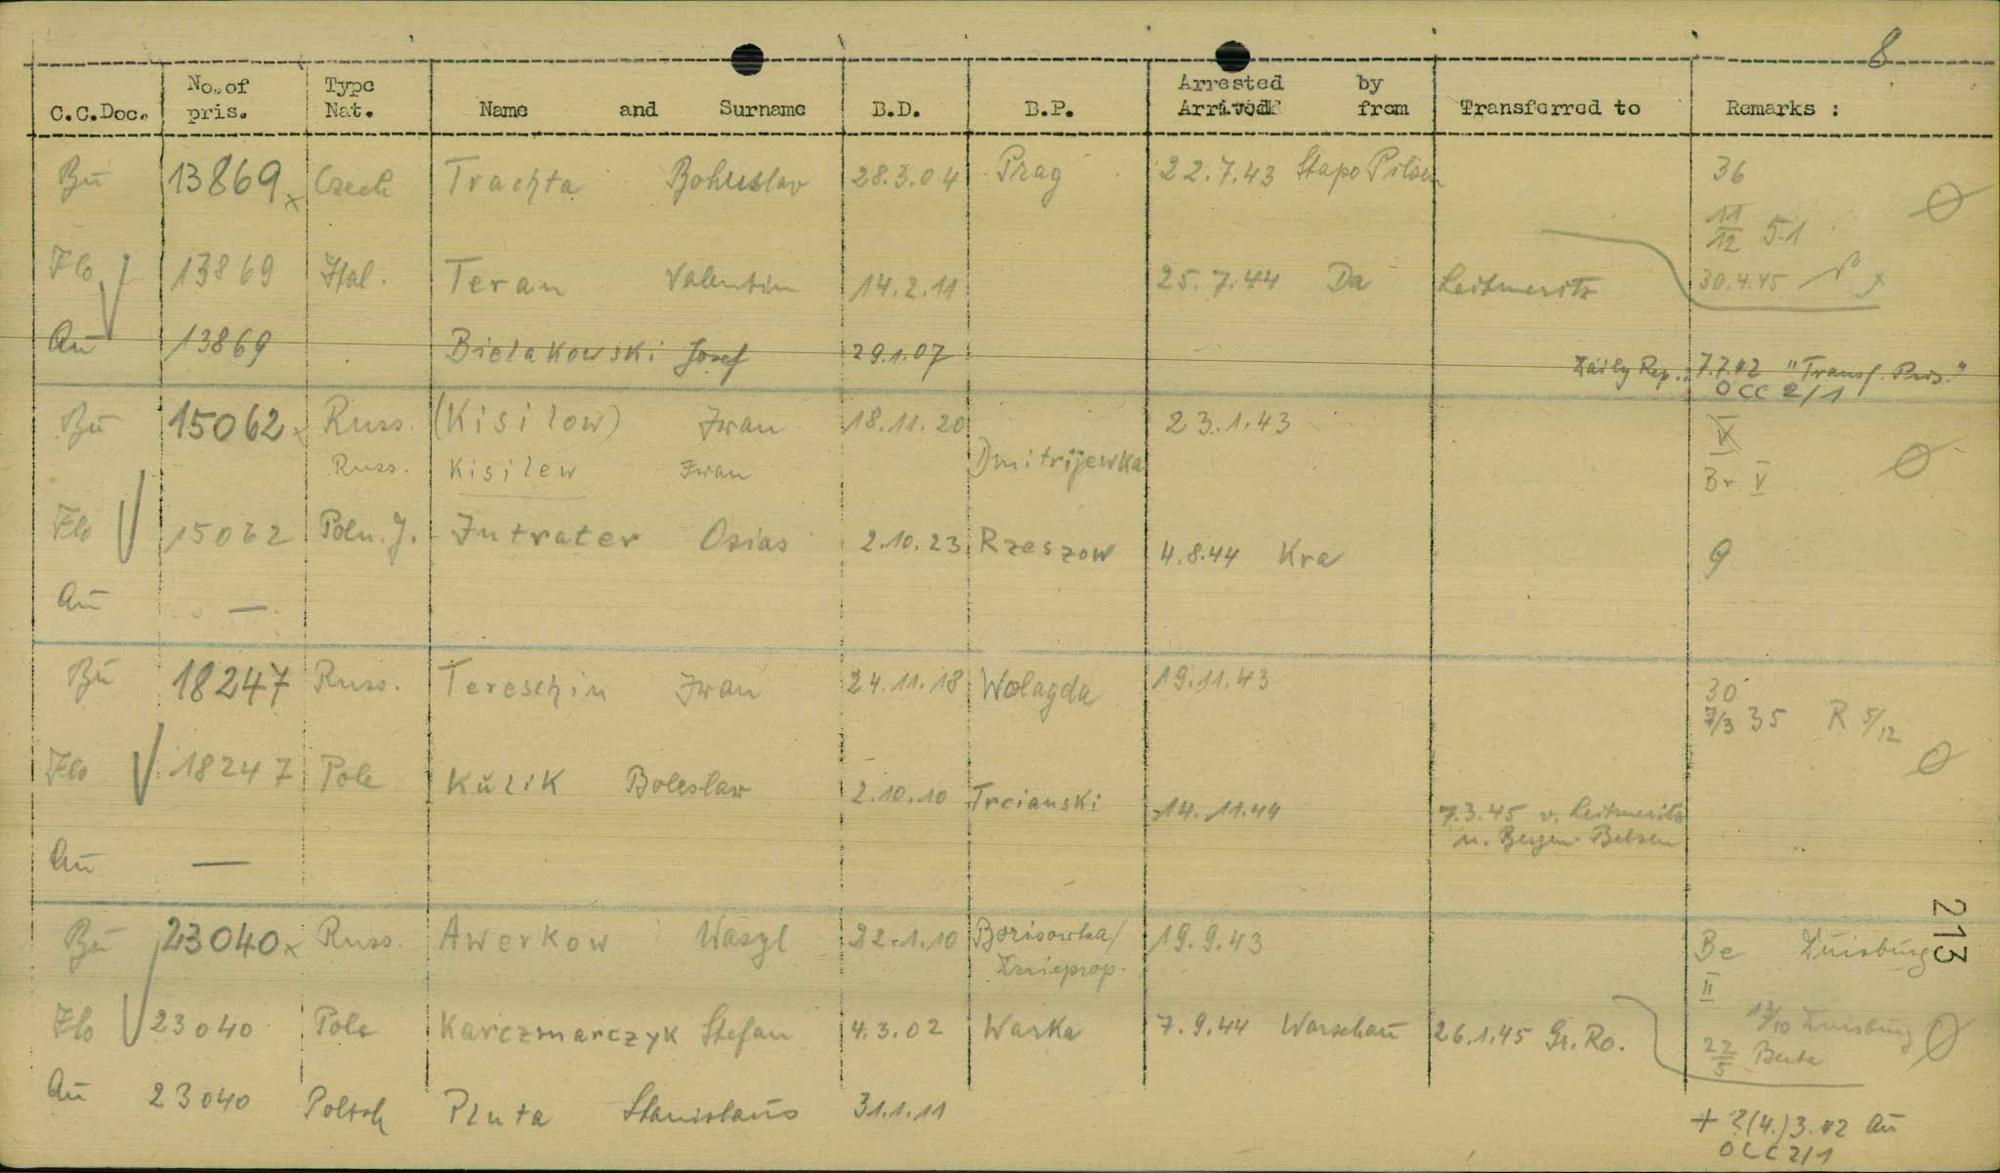 8
C.C.Doc. No. of pris. Type Nat. Name and Surname B.D. B.P. Arrested by Arrived from Transferred to Remarks :
Bū 13869 x Czech Trachta Bohuslav 28.3.04 Prag 22.7.43 Stapo Pilsen 36
11/12 51
Flo 13869 Ital. Teran Valentin 14.2.11 25.7.44 Da Leitmeritz 30.4.45
Aū 13869 Bielakowski Josef 29.1.07 Daily Rep. 7.7.42 "Transf. Pris."
OCC 2/1
Bū 15062 x Russ. (Kisilow) Iwan 18.11.20 23.1.43 V
Russ. Kisilew Iwan Dmitrijewka Br V
Flo 15062 Poln. J. Intrater Osias 2.10.23 Rzeszow 4.8.44 Kra 9
Aū —
Bū 18247 Russ. Tereschin Iwan 24.11.18 Wolagda 19.11.43 30
7/3 35 R 5/12
Flo 18247 Pole Kŭlik Boleslaw 2.10.10 Trcianski 14.11.44 7.3.45 v. Leitmeritz
n. Bergen-Belsen
Aū —
213
Bū 23040 x Russ. Awerkow Wasyl 22.1.10 Borisowka/ 19.9.43 Be Duisburg
Dnieprop. II
Flo 23040 Pole Karczmarczyk Stefan 4.3.02 Warka 7.9.44 Warschau 26.1.45 Gr. Ro. 13/10 Duisburg
22/5 Berta
Aū 23040 Poltsch Pluta Stanislaūs 31.1.11 + ?(4.)3.42 Aū
OCC 2/1